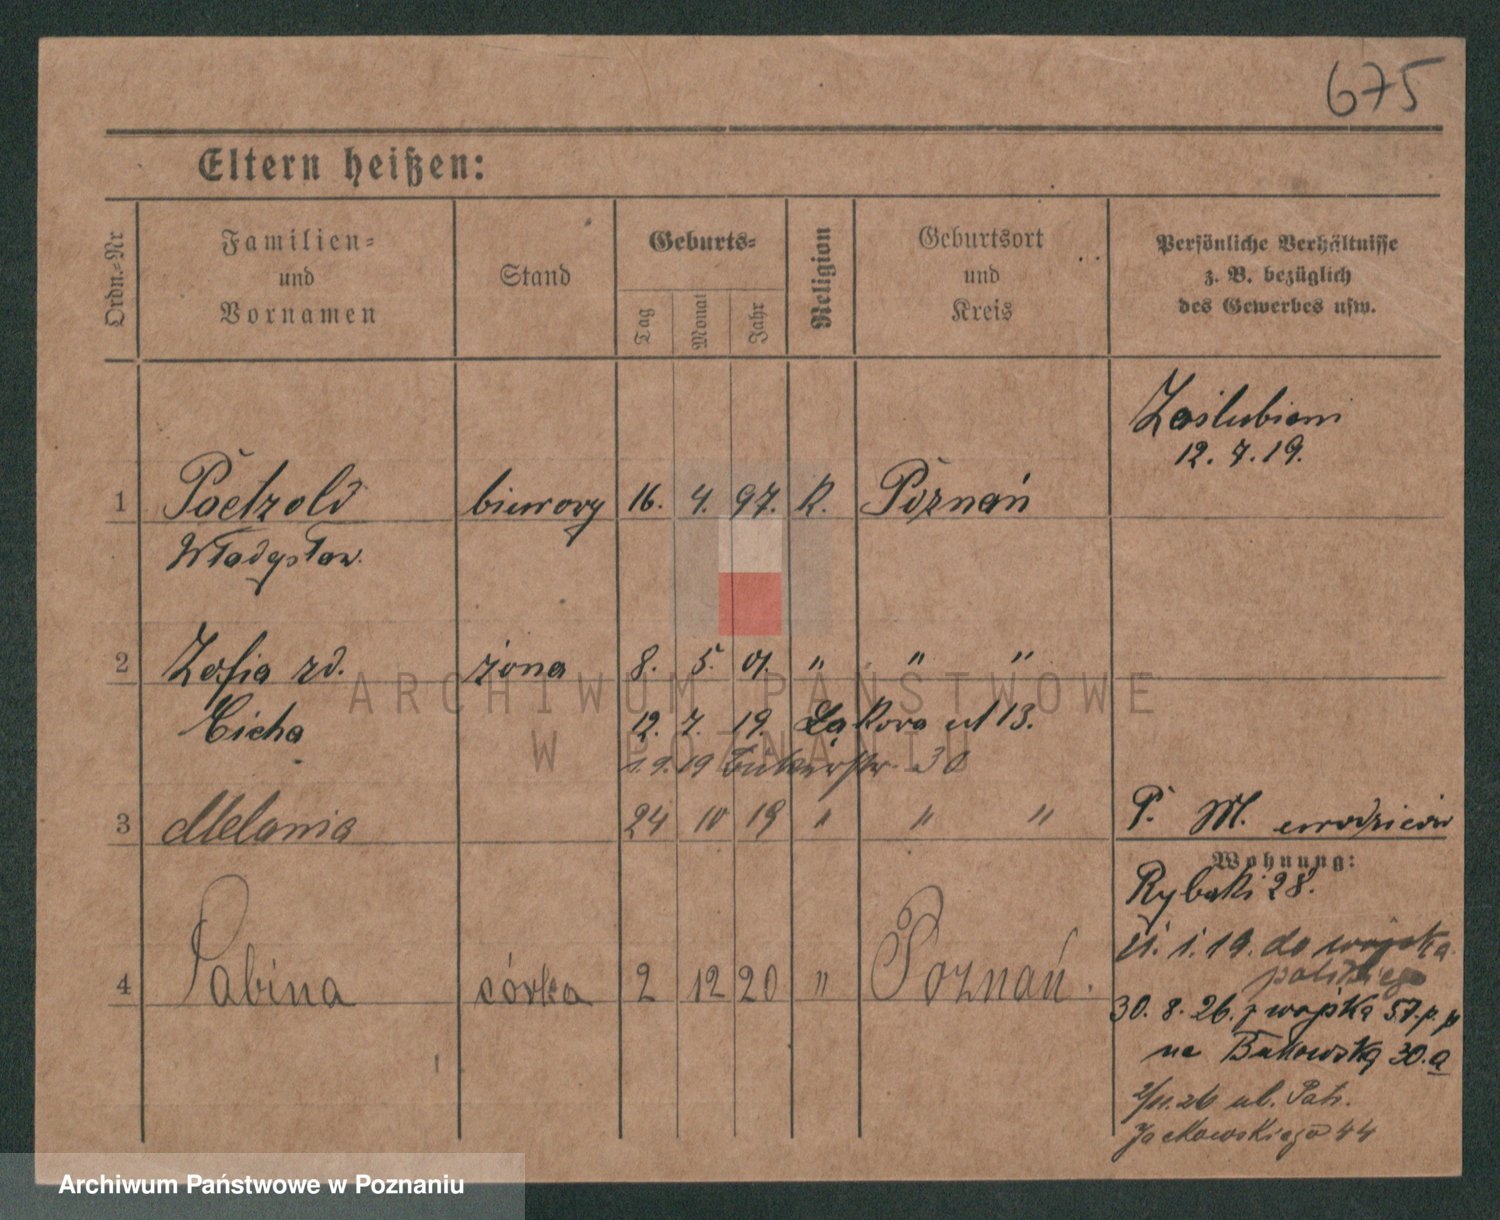 675
Eltern heißen:
Ordn.-Nr
Familien- und Vornamen
Stand
Geburts-
Tag
Monat
Jahr
Religion
Geburtsort und Kreis
Persönliche Verhältnisse
z. B. bezüglich
des Gewerbes usw.
Zaślubieni
12. 7. 19.
1 Paetzold biurowy 16. 4. 97. K. Poznań
Władysław.
2 Zofia rd. żona 8. 5. 01. " " "
Cicha 12. 7. 19. Łąkowa ul 13.
1. 9. 19 30
3 Melania 24 10 19 " " "
P. M.
Wohnung:
Rybaki 28.
21. 1. 19. do wojska
polskiego
4 Sabina córka 2 12 20 " Poznań.
30. 8. 26. z wojska 57. p. p
na Bukowską 30.a
2/11.26 ul. Patr.
Jackowskiego 44
ARCHIWUM PAŃSTWOWE
W POZNANIU
Archiwum Państwowe w Poznaniu